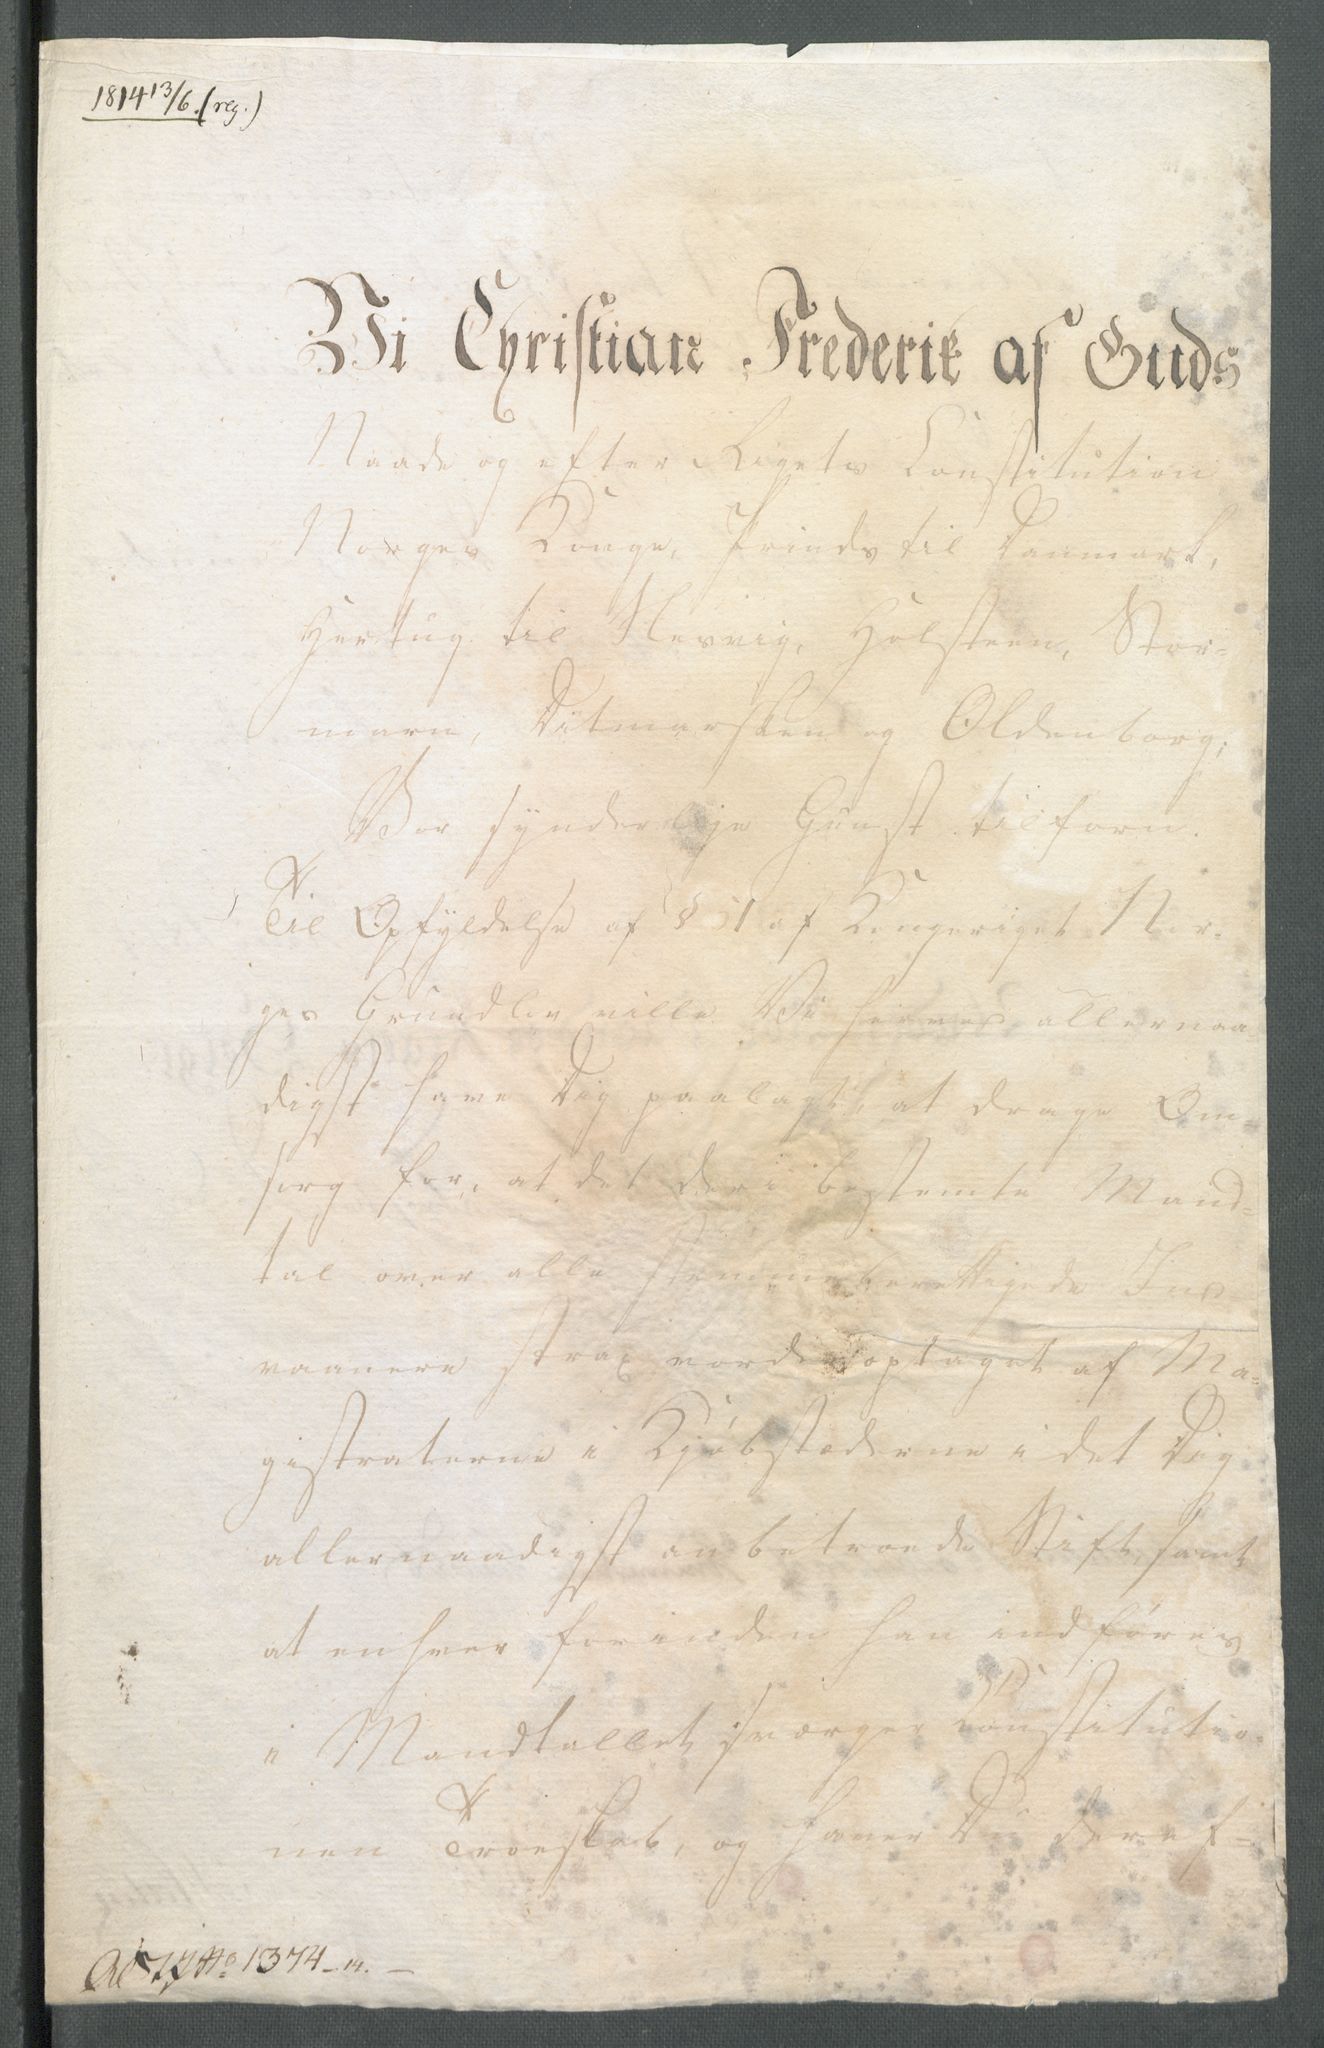 1814 13/6. (reg.)
Vi Christian Frederik af Guds
Naade og efter Rigets Constitution
Norges Konge, Prinds til Danmark,
Hertug til Slesvig, Holsteen, Stor-
marn, Ditmarsken og Oldenborg;
Vor synderlige Gunst tilforn.
Til Opfyldelse af § 51 af Kongeriget Nor-
ges Grundlov ville Vi herved allernaa
digst have Dig paalagt, at drage Om-
sorg for, at det deri bestemte Mand-
tal over alle stemmeberettigede Ind
vaanere strax vorder optaget af Ma-
gistraterne i Kjøbstæderne i det Dig
allernaadigst anbetroede Stift, samt
at enhver forinden han indføres
i Mandtallet, sværger Constitutio-
nen Troeskab, og haver Du deref-
No 1374 - 14. -